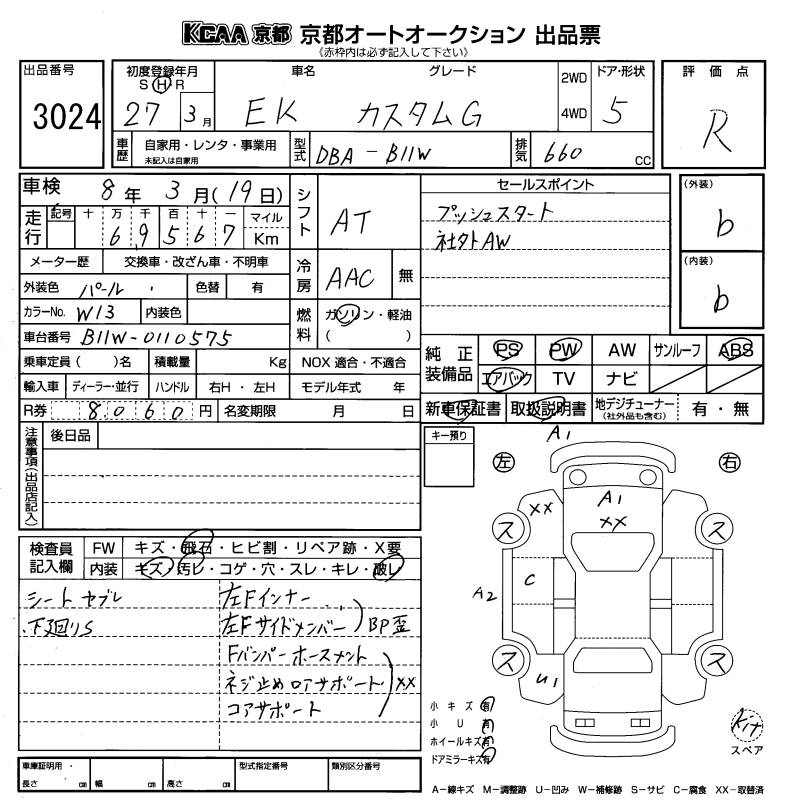 KCAA 京都 京都オートオークション 出品票
《赤枠内は必ず記入して下さい》
出品番号
3024
初度登録年月
S H R
27 3月
車名 グレード
EK カスタムG
2WD
4WD
ドア・形状
5
評価点
R
車歴
自家用・レンタ・事業用
未記入は自家用
型式
DBA-B11W
排気
660 CC
車検 8年 3月(19日)
走行
記号 十 万 千 百 十 一 マイル
6 9 5 6 7 Km
シフト
AT
メーター歴 交換車・改ざん車・不明車
外装色 パール 色替 有
カラーNo. W13 内装色
車台番号 B11W-0110575
冷房
AAC 無
燃料
ガソリン・軽油
( )
乗車定員( )名 積載量 Kg NOX 適合・不適合
輸入車 ディーラー・並行 ハンドル 右H・左H モデル年式 年
R券 8060円 名変期限 月 日
セールスポイント
プッシュスタート
社外AW
(外装)
b
(内装)
b
純正装備品
PS PW AW サンルーフ ABS
エアバック TV ナビ
新車保証書 取扱説明書 地デジチューナー(社外品も含む) 有・無
注意事項(出品店記入)
後日品
キー預り
検査員記入欄
FW キズ・飛石・ヒビ割・リペア跡・X要
内装 キズ・汚レ・コゲ・穴・スレ・キレ・破レ
シートヤブレ
下廻りS
左Fインナー
左Fサイドメンバー BP歪
Fバンパーホースメント
ネジ止めロアサポート XX
コアサポート
A1
左 右
A1
XX
XX
ス ス
A2
C
ス ス
U1
小キズ有
小U有
ホイールキズ有
ドアミラーキズ有
Kit
スペア
車庫証明用
長さ cm 幅 cm 高さ cm
型式指定番号
類別区分番号
A-線キズ M-調整跡 U-凹み W-補修跡 S-サビ C-腐食 XX-取替済